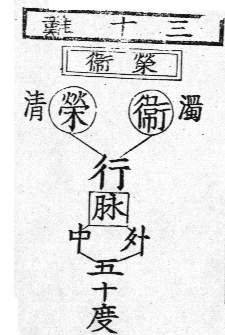 三十難
榮衞
濁衞榮清
行
脉
外中
五十度